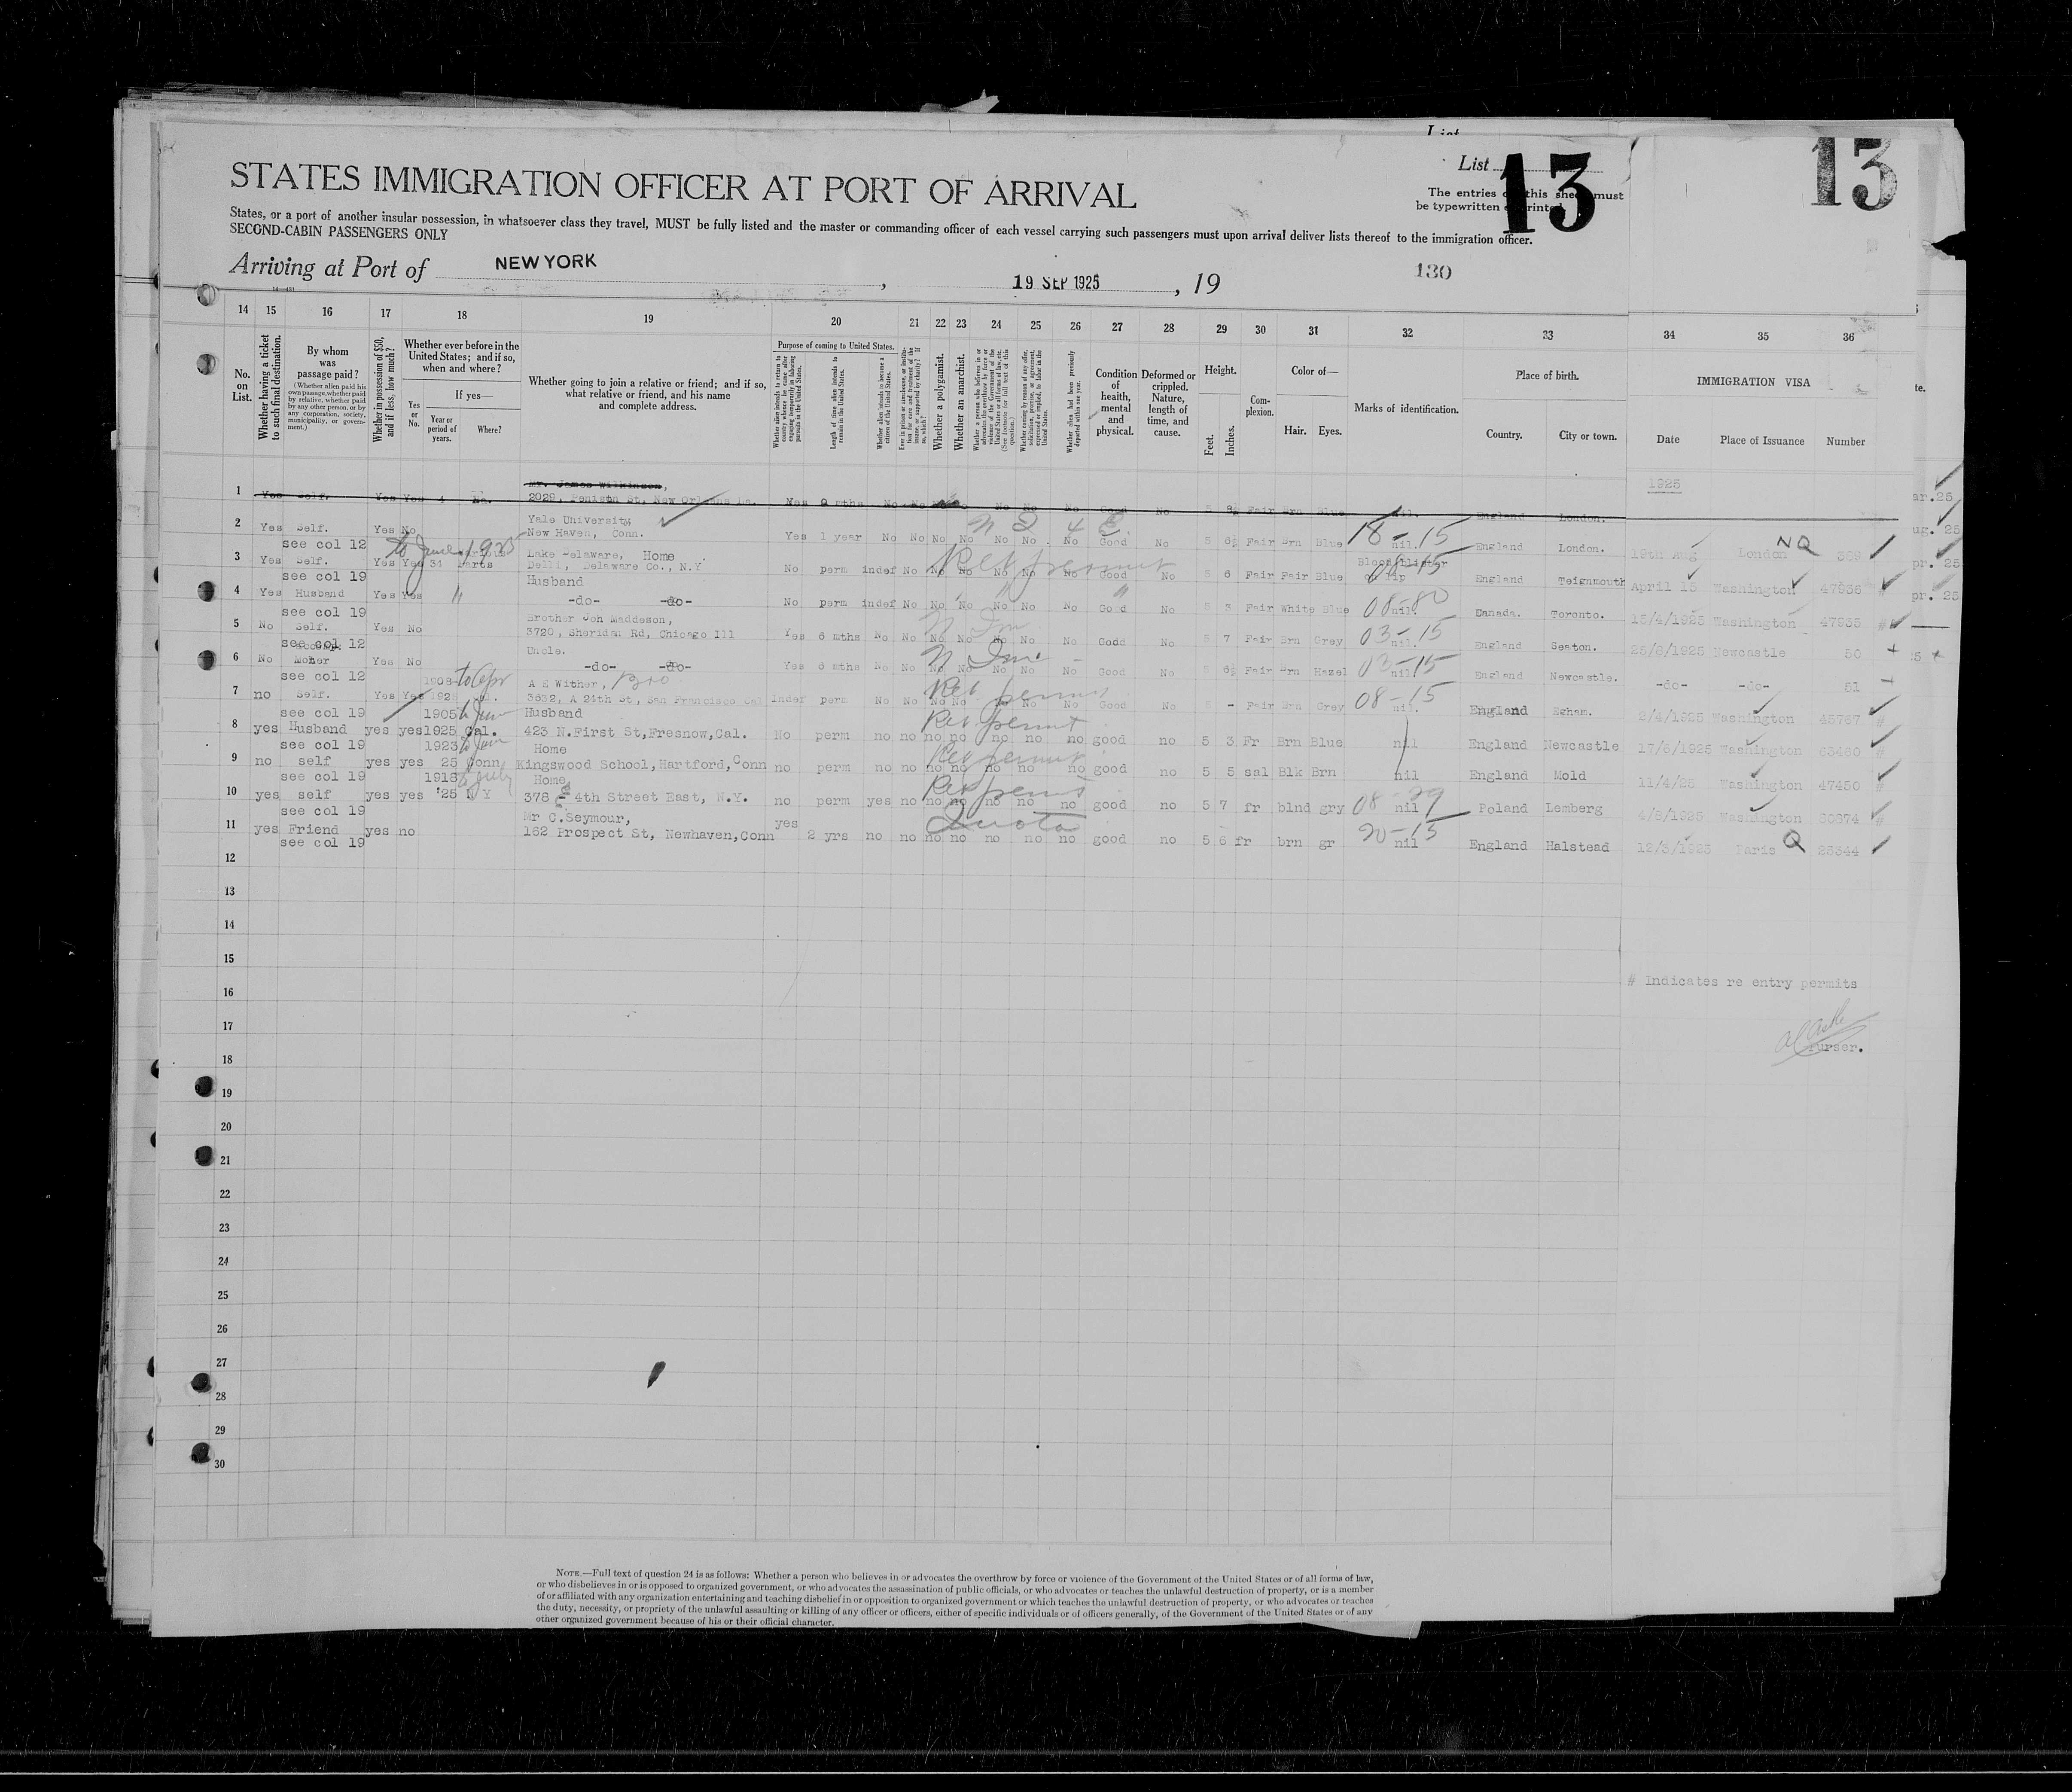 List
List 13
13
STATES IMMIGRATION OFFICER AT PORT OF ARRIVAL
The entries on this sheet must
be typewritten or printed.
States, or a port of another insular possession, in whatsoever class they travel, MUST be fully listed and the master or commanding officer of each vessel carrying such passengers must upon arrival deliver lists thereof to the immigration officer.
SECOND-CABIN PASSENGERS ONLY
Arriving at Port of NEW YORK, 19 SEP 1925, 19
130
14 15 16 17 18 19 20 21 22 23 24 25 26 27 28 29 30 31 32 33 34 35 36
No. on List.
Whether having a ticket to such final destination.
By whom was passage paid?
(Whether alien paid his own passage, whether paid by relative, whether paid by any other person, or by any corporation, society, municipality, or government.)
Whether in possession of $50, and if less, how much?
Whether ever before in the United States; and if so, when and where?
If yes—
Yes or No.
Year or period of years.
Where?
Whether going to join a relative or friend; and if so, what relative or friend, and his name and complete address.
Purpose of coming to United States.
Whether alien intends to return to country whence he came after engaging temporarily in laboring pursuits in the United States.
Length of time alien intends to remain in the United States.
Whether alien intends to become a citizen of the United States.
Whether a polygamist.
Whether an anarchist.
Condition of health, mental and physical.
Deformed or crippled. Nature, length of time, and cause.
Height.
Feet.
Inches.
Complexion.
Color of—
Hair.
Eyes.
Marks of identification.
Place of birth.
Country.
City or town.
IMMIGRATION VISA
Date
Place of Issuance
Number
1925
1 Yes Self. Yes Yes 4 Mr. James Wilkinson,
2029, Peniston St, New Orleans La. Yes 9 mths No No No No No No Good No 5 Fair Brn Blue nil. England London.
2 Yes Self. Yes No Yale University
New Haven, Conn. Yes 1 year No No No No No No No Good No 5 6½ Fair Brn Blue 18-15 nil. England London. 19th Aug London NQ
see col 12 to June 1925
3 Yes Self. Yes Yes Lake Delaware, Home
Delhi, Delaware Co., N.Y No perm indef No No No No No No Good No 5 6 Fair Fair Blue Blood Blister 08-15 lip England Teignmouth April 15 Washington 47936 #
see col 19 Husband
4 Yes Husband Yes Yes " -do- -do- No perm indef No No No No No No Good No 5 3 Fair White Blue 08-80 nil. Canada. Toronto. 15/4/1925 Washington 47935 #
see col 19 Brother Joh Maddeson,
5 No Self. Yes No 3720, Sheridan Rd, Chicago Ill Yes 6 mths No No No No No No No Good No 5 7 Fair Brn Grey 03-15 nil. England Seaton. 25/8/1925 Newcastle 50
see col 12 Uncle.
6 No Yes No -do- -do- Yes 6 mths No No No No No No No Good No 5 6½ Fair Brn Hazel 03-15 nil England Newcastle. -do- -do- 51
see col 12 1908 to Apr A E Wither, Bro
7 no Self. Yes Yes 3632, A 24th St, San Francisco Cal Indef perm No No No No No No No Good No 5 - Fair Brn Grey 08-15 nil. England Egham. 2/4/1925 Washington 45767 #
see col 19 1905 to Jun Husband
8 yes Husband yes yes 1925 Cal. 423 N.First St,Fresnow,Cal. No perm no no no no no no no good no 5 3 Fr Brn Blue nil England Newcastle 17/6/1925 Washington 63460 #
see col 19 1923 to Jun Home
9 no self yes yes 25 Conn Kingswood School,Hartford,Conn no perm no no no no no no no good no 5 5 sal Blk Brn nil England Mold 11/4/25 Washington 47450 #
see col 19 1918 to July Home
10 yes self yes yes '25 N Y 378 E 4th Street East, N.Y. no perm yes no no no no no no good no 5 7 fr blnd gry 08-29 nil Poland Lemberg Washington #
see col 19 Mr C.Seymour,
11 yes Friend yes no 162 Prospect St, Newhaven,Conn yes 2 yrs no no no no no no no good no 5 6 fr brn gr 20-15 nil England Halstead Paris Q 25344
see col 19
Ret permit
Quota
12
13
14
15
16
# Indicates re entry permits
17
Purser.
18
19
20
21
22
23
24
25
26
27
28
29
30
NOTE.—Full text of question 24 is as follows: Whether a person who believes in or advocates the overthrow by force or violence of the Government of the United States or of all forms of law,
or who disbelieves in or is opposed to organized government, or who advocates the assassination of public officials, or who advocates or teaches the unlawful destruction of property, or is a member
of or affiliated with any organization entertaining and teaching disbelief in or opposition to organized government or which teaches the unlawful destruction of property, or who advocates or teaches
the duty, necessity, or propriety of the unlawful assaulting or killing of any officer or officers, either of specific individuals or of officers generally, of the Government of the United States or of any
other organized government because of his or their official character.